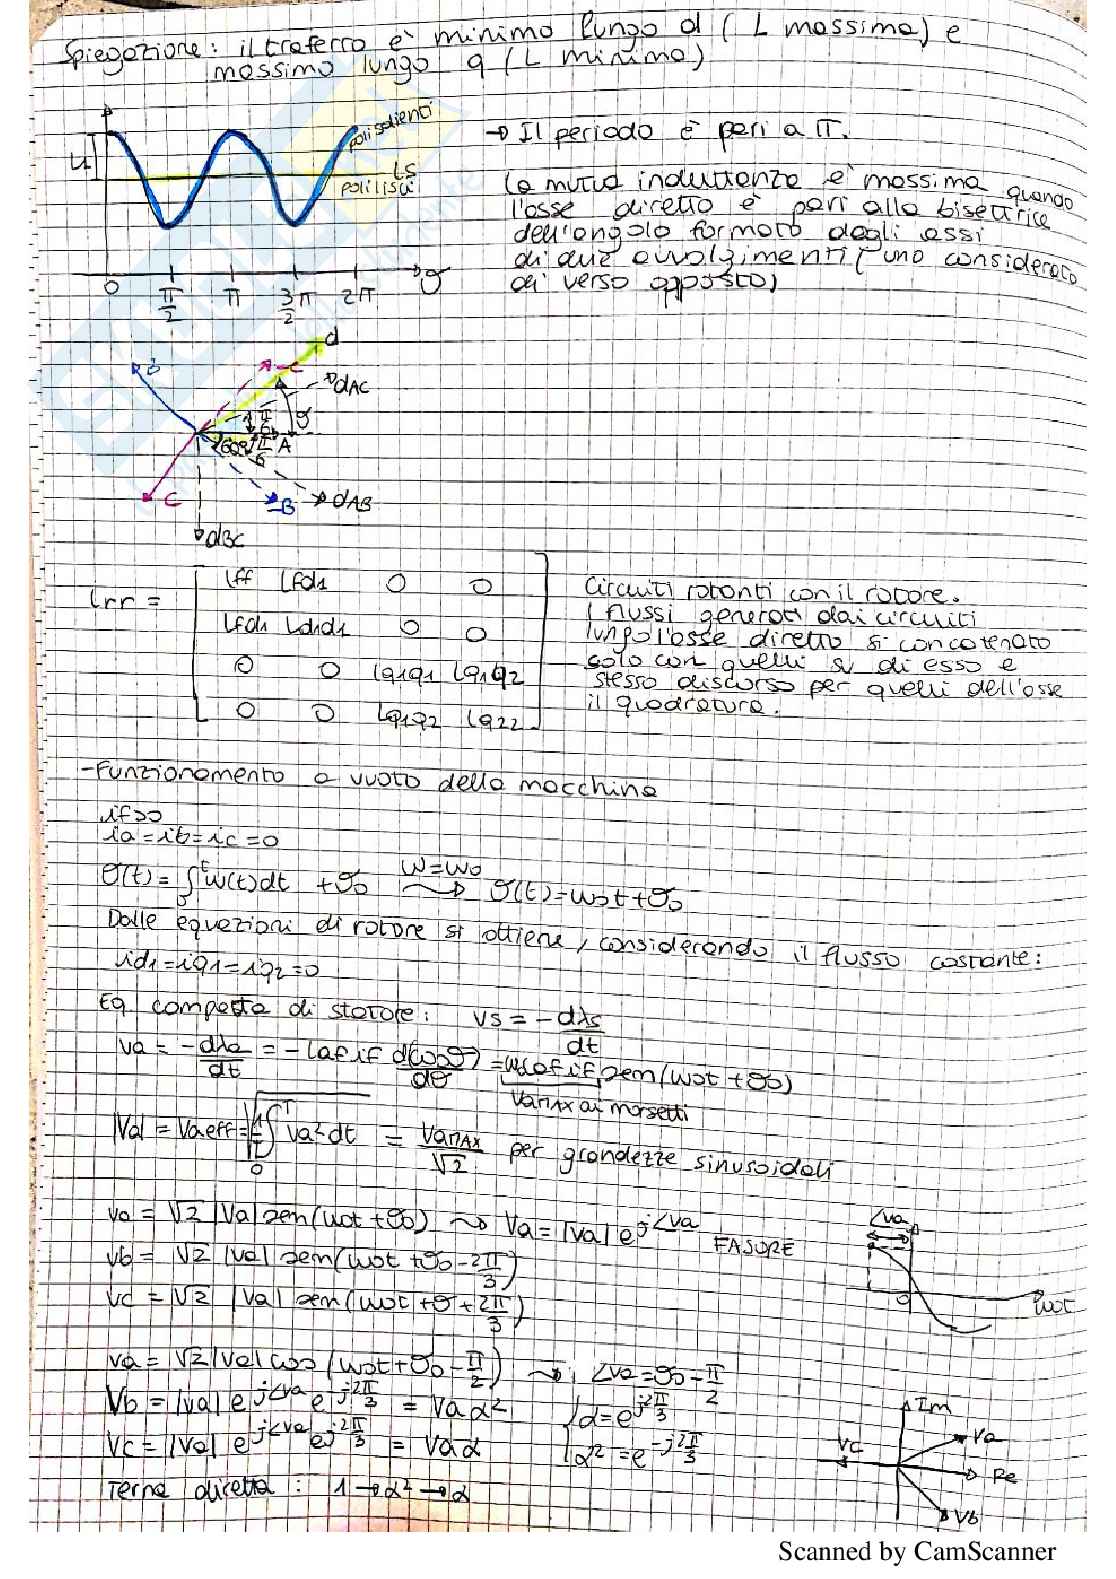 Spiegazione: il traferro è minimo lungo d (L massima) e
massimo lungo q (L minima)
poli salienti
Ls
poli lisci
0 π/2 π 3/2 π 2π ϑ
→ Il periodo è pari a π.
La mutua induttanza è massima quando
l'asse diretto è pari alla bisettrice
dell'angolo formato dagli assi
di due avvolgimenti (uno considerato
di verso opposto)
d
B
-C
dAC
ϑ
π/6
60° π/6 A
C
-B
dAB
dBC
Lrr =
Lff Lfd1 0 0
Lfd1 Ld1d1 0 0
0 0 Lq1q1 Lq1q2
0 0 Lq1q2 Lq22
Circuiti rotanti con il rotore.
I flussi generati dai circuiti
lungo l'asse diretto si concatenato
solo con quelli su di esso e
stesso discorso per quelli dell'asse
il quadratura.
-Funzionamento a vuoto della macchina
if>0
ia=ib=ic=0
ϑ(t)= ∫₀ᵗ w(t)dt +ϑ0 w=w0 ⟶ ϑ(t)=w0t+ϑ0
Dalle equazioni di rotore si ottiene, considerando il flusso costante:
id1=iq1=iq2=0
Eq. compatta di statore: vs = -dλs/dt
va = -dλa/dt = -Laf if d(cosϑ)/dϑ = w0 Laf if sen(w0t+ϑ0)
VaMAX ai morsetti
|Va| = Vaeff = √(1/T ∫₀ᵀ va² dt) = VaMAX/√2 per grandezze sinusoidali
va = √2 |Va| sen(w0t+ϑ0) ⟶ Va = |Va| e^j∠va FASORE
vb = √2 |Va| sen(w0t+ϑ0-2π/3)
vc = √2 |Va| sen(w0t+ϑ+2π/3)
∠va
0
w0t
va = √2 |Va| cos(w0t+ϑ0-π/2) ⟶ ∠va=ϑ0-π/2
Vb = |Va| e^j∠va e^-j2π/3 = Va α² α=e^j2π/3
Vc = |Va| e^j∠va e^j2π/3 = Va α α²=e^-j2π/3
Terna diretta: 1→α²→α
Im
Va
Vc
Re
Vb
Scanned by CamScanner